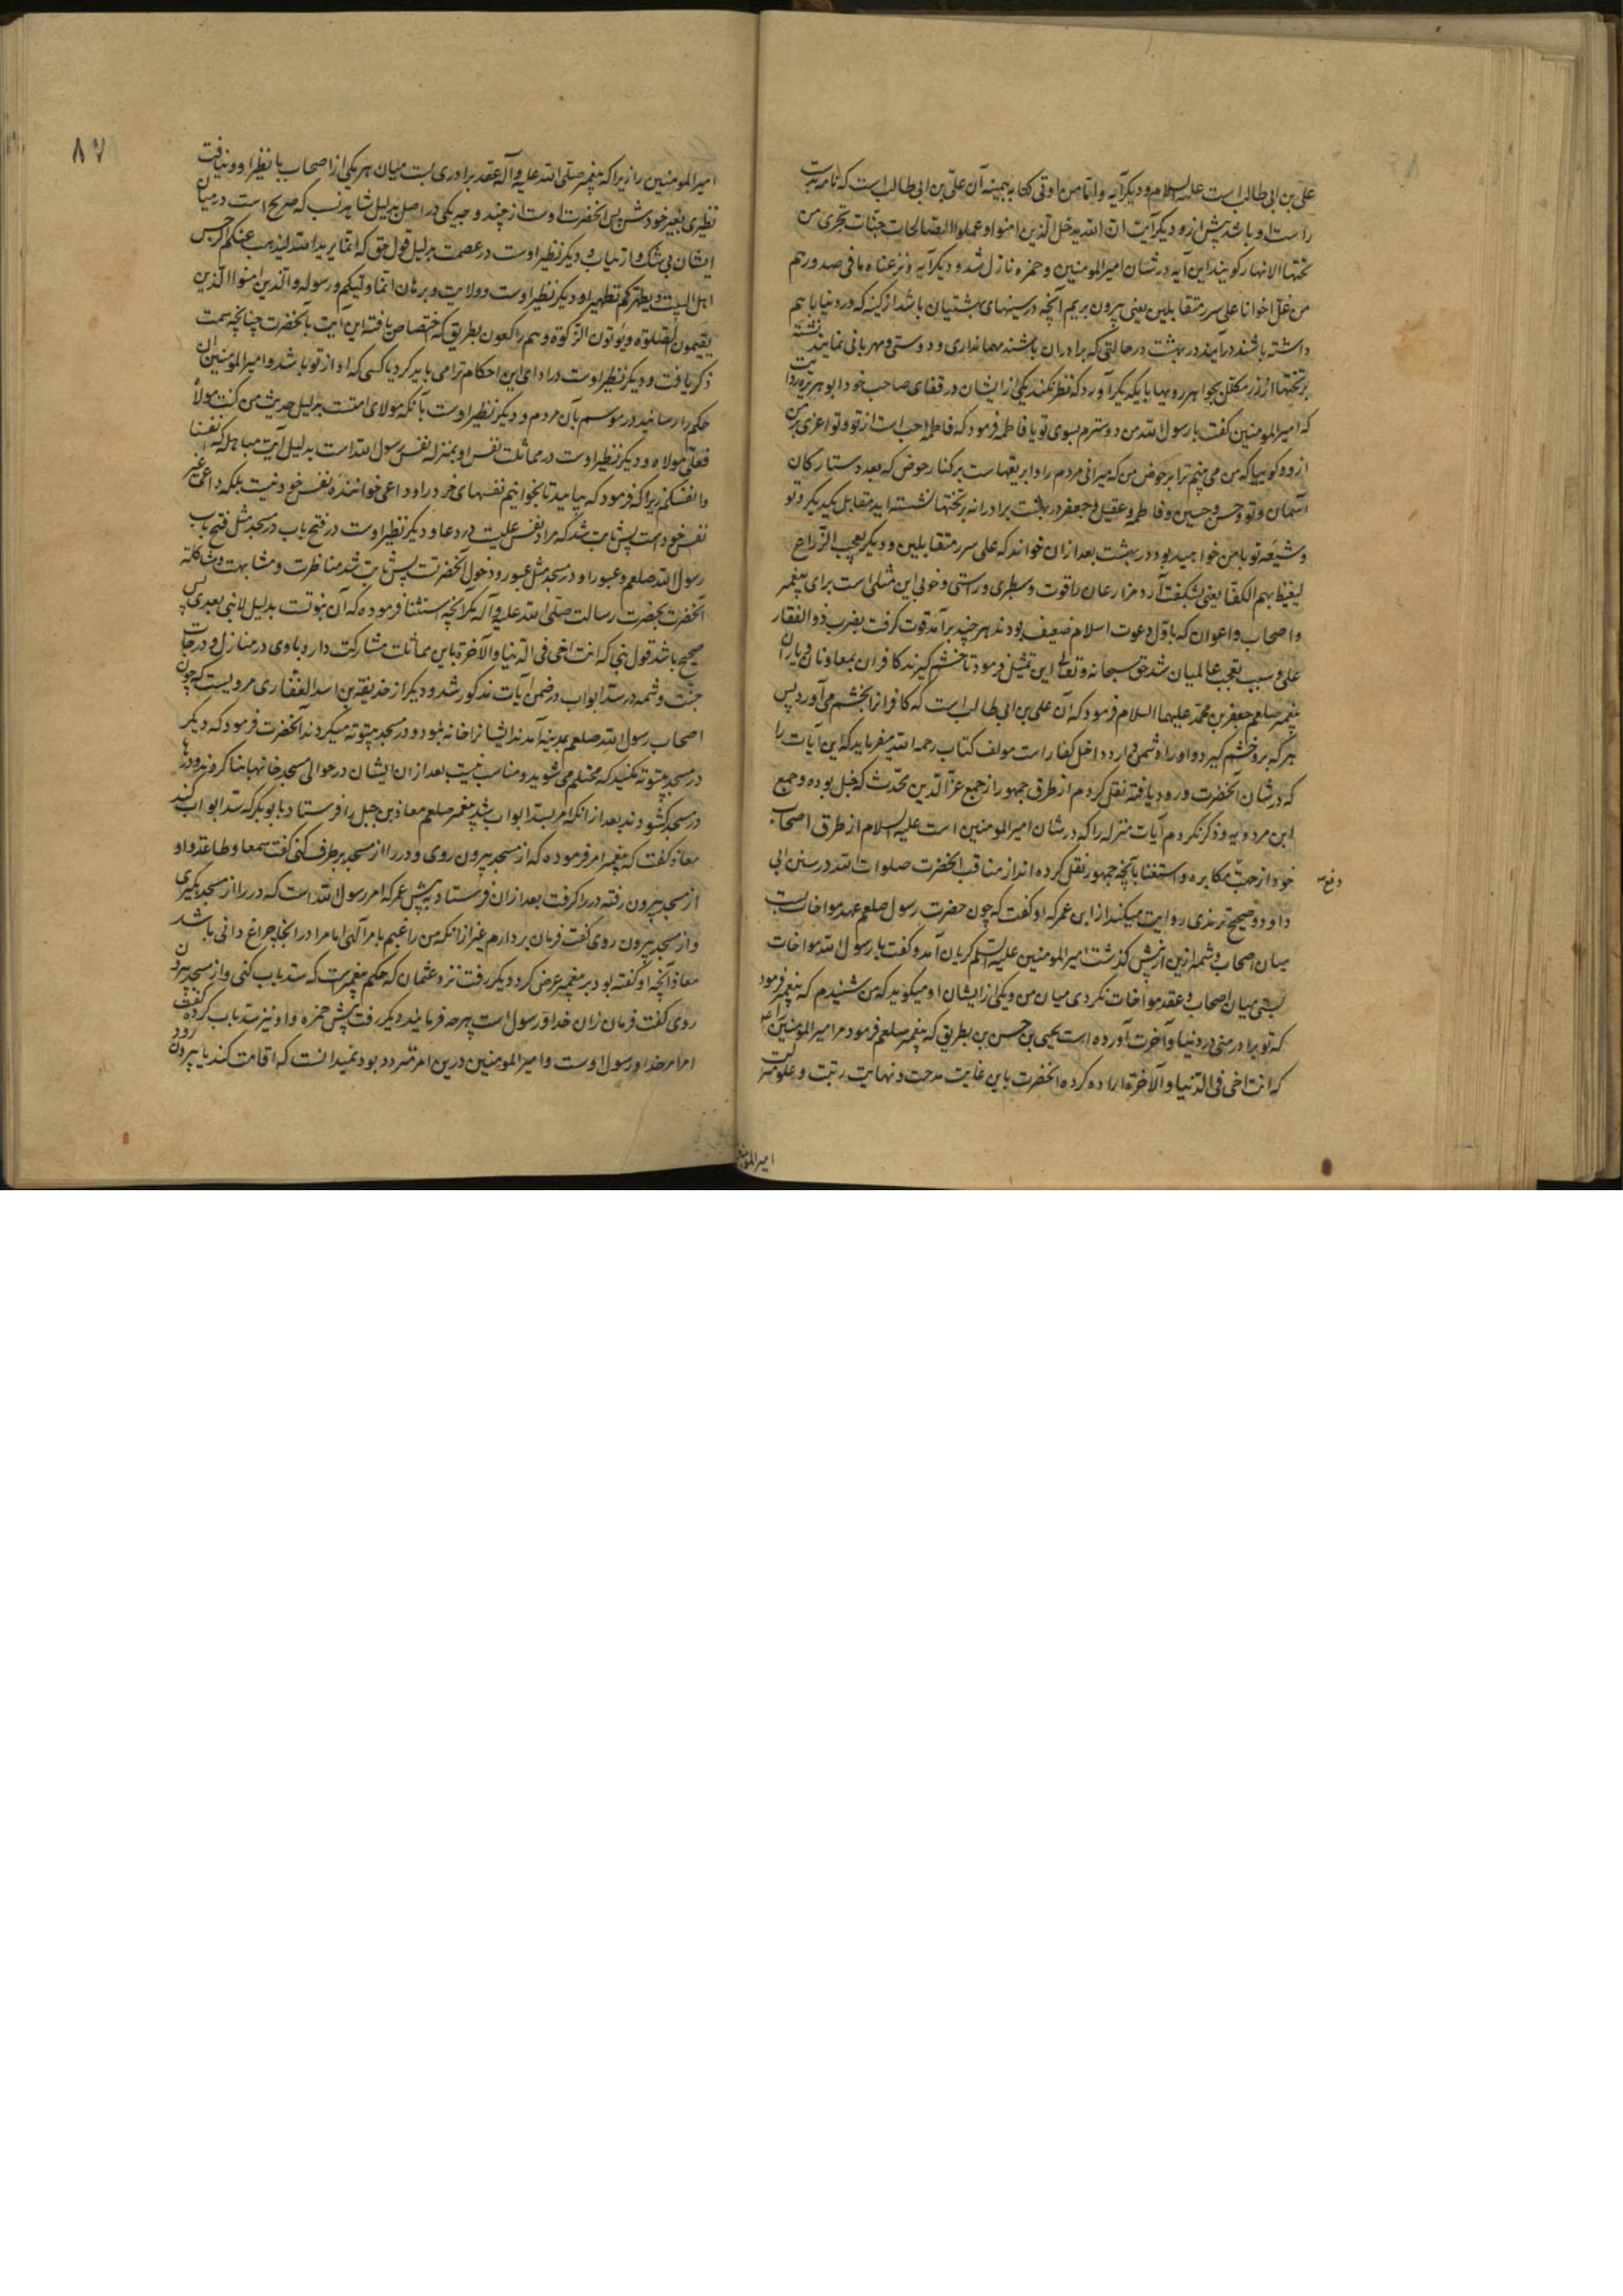 علی بن ابی طالب است علیه السلام و دیگر آیه و اما من اوتی کتابه بیمینه آن علی بن ابی طالب است که نامه بدست
راست او باشد پیش ازو و دیگر آیت ان الله یدخل الذین امنوا و عملوا الصالحات جنات تجری من
تحتها الانهار کویند این آیه در شان امیرالمومنین و حمزه نازل شد و دیگر آیه و نزعنا ما فی صدورهم
من غل اخوانا علی سرر متقابلین یعنی بیرون بریم آنچه در سینهای بهشتیان باشد از کینه که در دنیا با هم
داشته باشند در آیند در بهشت در حالتی که برادران باشند مهمانداری و دوستی و مهربانی نمایند نشسته
بر تختها از زر مکلل بجواهر رویها با یکدیکر آورد که نظر نکند یکی از ایشان در قفای صاحب خود ابو هریره روایت
که امیرالمومنین کفت یا رسول الله من دوسترم بسوی تو یا فاطمه فرمود که فاطمه احب است از تو و تو اعزی بر من
ازو و کوییا که من می بینم ترا بر حوض من که میرانی مردم را و ابریقهاست بر کنار حوض که بعدد ستارکان
آسمان و تو و حسن و حسین و فاطمه و عقیل و جعفر در بهشت برادرانه بر تختها نشسته اید مقابل یکدیکر و تو
و شیعه تو با من خواهید بود در بهشت بعد ازان خواند که علی سرر متقابلین و دیگر یعجب الزراع
لیغیظ بهم الکفار یعنی بشکفت آرد مزارعان را قوت و سطبری و راستی و خوبی این مثلی است برای پیغمبر
و اصحاب و اعوان که باول دعوت اسلام ضعیف بودند هر چند برآمد قوت کرفت بضرب ذو الفقار
علی و سبب تعجب عالمیان شد حق سبحانه و تعالی این تمثیل فرمود تا خشم کیرند کافران بمعاونان و یاران
پیغمبر صلعم جعفر بن محمد علیهما السلام فرمود که آن علی بن ابی طالب است که کافرانرا بخشم می آورد پس
هر که برو خشم کیرد و او را دشمن دارد داخل کفار است مولف کتاب رحمه الله میفرماید که این آیات را
که در شان آنحضرت ورود یافته نقل کردم از طرق جمهور از جمیع عز الدین محدث که حنبل بوده و جمیع
ابن مردویه و ذکر نکردم آیات منزله را که در شان امیرالمومنین است علیه السلام از طرق اصحاب
خود از جهت مکابره و استغنا بآنچه جمهور نقل کرده اند از مناقب آنحضرت صلوات الله در سنن ابی
داود و صحیح ترمذی روایت میکنند از ابن عمر که او کفت که چون حضرت رسول صلعم عهد مواخات بست
میان اصحاب و شمه ازین از پیش کذشت امیرالمومنین علیه السلم کریان آمد و کفت یا رسول الله مواخات
بستی میان اصحاب و عقد مواخات نکردی میان من و یکی از ایشان او میکوید که من شنیدم که پیغمبر فرمود
که تو برادر منی در دنیا و آخرت آورده است یحیی بن حسن بن بطریق که پیغمبر صلعم فرمود مر امیرالمومنین را
که انت اخی فی الدنیا و الآخرة اراده کرده آنحضرت باین غایت مدحت و نهایت رتبت و علو
امیرالمومنین
۸۷
امیرالمومنین را زیرا که پیغمبر صلی الله علیه و آله عقد برادری بست میان هر یکی از اصحاب با نظیر او و نیافت
نظیری بغیر خود پس آنحضرت اوست از چند وجه یکی در اصل بدلیل شاهد نسب که صریح است در میان
ایشان بی شک و ارتیاب و دیگر نظیر اوست در عصمت بدلیل قول حق که انما یرید الله لیذهب عنکم الرجس
اهل البیت و یطهرکم تطهیرا و دیگر نظیر اوست در ولایت و برهان انما ولیکم الله و رسوله والذین امنوا الذین
یقیمون الصلوة و یؤتون الزکوة و هم راکعون بطریق که اختصاص یافته این آیت بآنحضرت چنانچه سمت
ذکر یافت و دیگر نظیر اوست در ادای این احکام ترا می باید کرد یا کسی که او از تو باشد و امیرالمومنین آن
حکم را رسانید در موسم بآن مردم و دیگر نظیر اوست بآنکه مولای امتست بدلیل حدیث من کنت مولاه
فعلی مولاه و دیگر نظیر اوست در مماثلت نفس او بمنزله نفس رسول الله است بدلیل آیت مباهله که نفسنا
و انفسکم زیرا که فرمود که بیایید تا بخوانیم نفسهای خود را و داعی خواننده نفس خود نیست بلکه داعی غیر
نفس خود است پس ثابت شد که مراد نفس علیست در دعا و دیگر نظیر اوست در فتح باب در مسجد مثل فتح باب
رسول الله صلعم و عبور او در مسجد مثل عبور و دخول آنحضرتست پس ثابت شد مناظرت و مشابهت و مشاکله
آنحضرت بحضرت رسالت صلی الله علیه و آله مکر آنچه استثنا فرموده که آن نبوتست بدلیل لا نبی بعدی پس
صحیح باشد قول نبی که انت اخی فی الدنیا و الآخرة باین مماثلت مشارکت دارد با وی در منازل و درجات
جنت و شمه در سد ابواب در ضمن آیات مذکور شد و دیگر از حذیفه بن اسد الغفاری مرویست که چون
اصحاب رسول الله صلعم بمدینه آمدند ایشانرا خانه نبود و در مسجد بیتوته میکردند آنحضرت فرمود که دیگر
در مسجد بیتوته نکنید که محتلم می شوید و مناسب نیست بعد ازان ایشان در حوالی مسجد خانها بنا کردند و درها
در مسجد کشودند بعد از آنکه امر بسد ابواب شد پیغمبر صلعم معاذ بن جبل را فرستاد با بوبکر که سد ابواب کند
معاذ کفت که پیغمبر امر فرموده که از مسجد بیرون روی و در را از مسجد برطرف کنی کفت سمعا و طاعة و او
از مسجد بیرون رفته در را کرفت بعد ازان فرستاد به پیش عمر که امر رسول الله است که در را از مسجد بکیری
و از مسجد بیرون روی کفت فرمان بردارم غیر از آنکه من راغبم بامر آلهی اما مرا در آنجا چراغ دانی باشد
معاذ آنچه او کفته بود بر پیغمبر عرض کرد و دیگر رفت نزد عثمان که حکم پیغمبرست که سد باب کنی و از مسجد بیرون
روی کفت فرمان ازان خدا و رسول است بهر چه فرمایند دیگر رفت پیش حمزه و او نیز سد باب کرده کفت
امر امر خدا و رسول اوست و امیرالمومنین درین امر متردد بود نمیدانست که اقامت کند یا بیرون رود